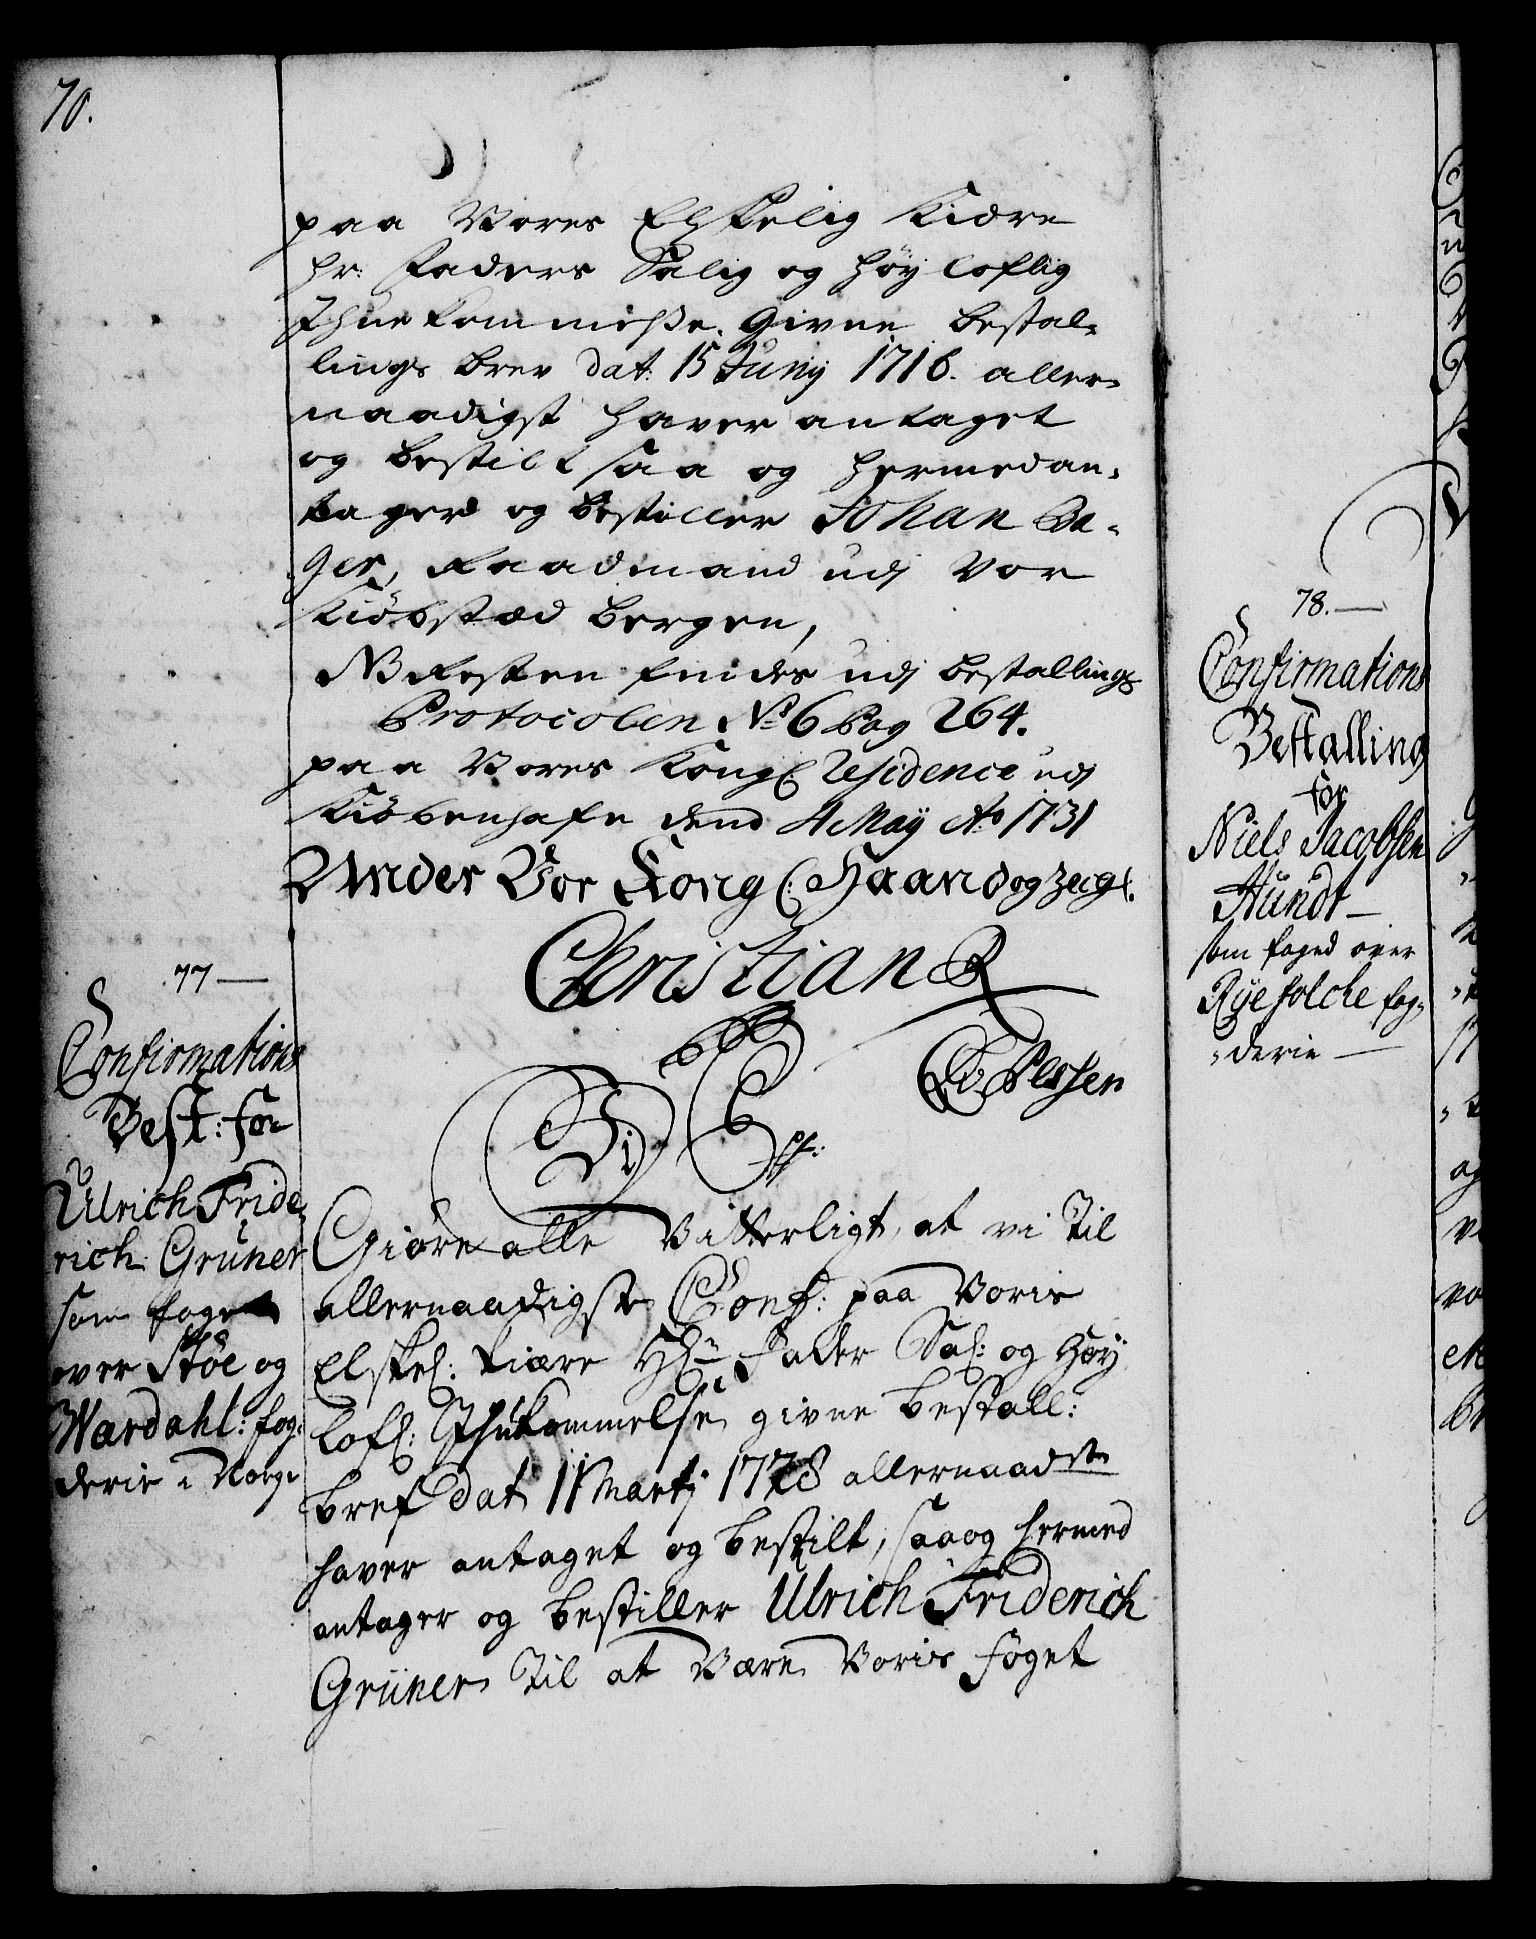 70.
paa Vores Elskelig Kiære
hr: Faders Salig og høy loflig
Ihuekommelße. givne bestal-
lings brev dat: 15 Juny 1716. aller-
naadigst haver antaget
og bestilt saa og hermed an-
tager og bestiller Johan Ba-
ger, Raadmand udj Vor
Kiøbstæd Bergen,
NB Resten findes udj bestallings
Protocolen No 6 Pag 264.
paa Vores Kongl: Residence udj
Kiøbenhafn dend 4 May Ao 1731
Under Vor Kongl: Haand og Zeigl.
Christian R
Plessen
77
Confirmations
Best: for
Ulrich Fride-
rich Grüner
som foget
over Støe og
Wardahl: fog-
derie i Norge
Vi C 6 pp:
Giøre alle Vitterligt, at vi Til
allernaadigste Conf: paa Voris
Elskel: kiære Hr Fader Sal: og Høy
Lofl: Ihukommelse givne bestall:
bref dat 11 Martj 1728 allernaadste
haver antaget og bestilt, saa og hermed
antager og bestiller Ulrich Friderich
Grüner Til at Være Voris foget
78.
Confirmations
Bestalling
for
Niels Jacobsen
Hundt
som foged over
Ryefolche fog-
derie